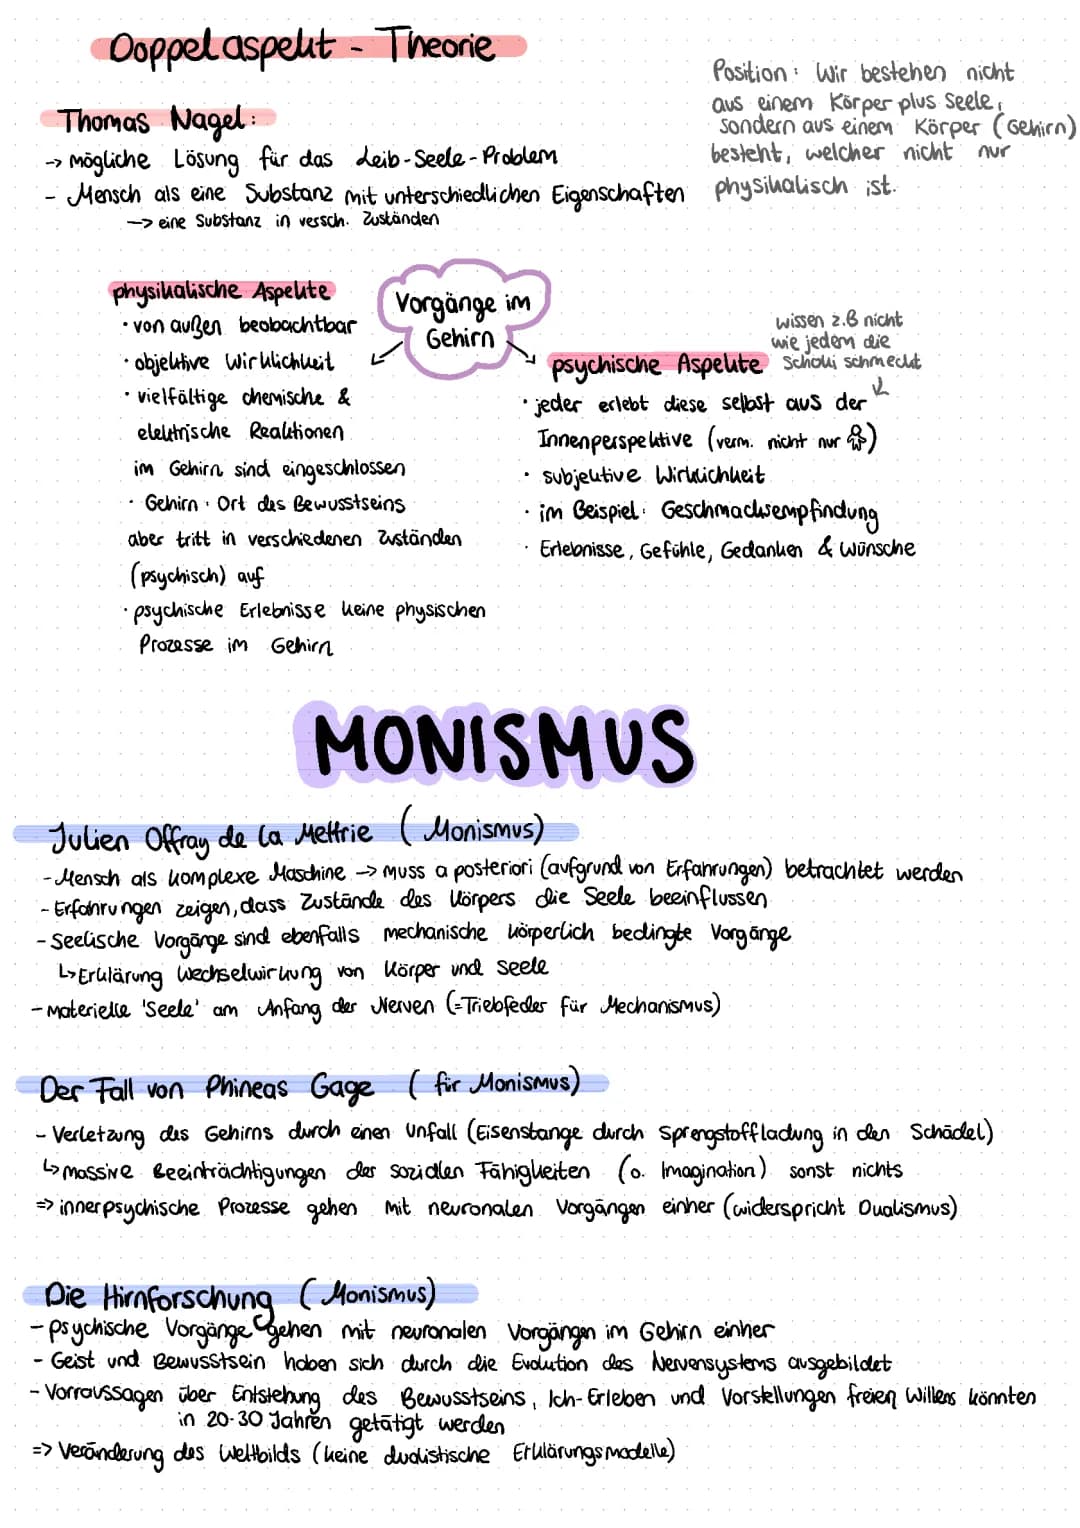 Doppelaspekt - Theorie
Position: Wir bestehen nicht
aus einem Körper plus Seele,
sondern aus einem Körper (Gehirn)
besteht, welcher nicht nur
physikalisch ist.
Thomas Nagel:
-> mögliche Lösung für das Leib-Seele-Problem
- Mensch als eine Substanz mit unterschiedlichen Eigenschaften
--> eine Substanz in versch. Zuständen
Vorgänge im
Gehirn
physikalische Aspekte
· von außen beobachtbar
· objektive Wirklichkeit
· vielfältige chemische &
elektrische Reaktionen
im Gehirn sind eingeschlossen
· Gehirn: Ort des Bewusstseins
aber tritt in verschiedenen Zuständen
(psychisch) auf
· psychische Erlebnisse keine physischen
Prozesse im Gehirn
wissen z.B nicht
wie jedem die
Schoki schmeckt
psychische Aspekte
· jeder erlebt diese selbst aus der
Innenperspektive (verm. nicht nur )
· subjektive Wirklichkeit
· im Beispiel: Geschmacksempfindung
· Erlebnisse, Gefühle, Gedanken & Wünsche
MONISMUS
Julien Offray de la Mettrie (Monismus)
- Mensch als komplexe Maschine -> muss a posteriori (aufgrund von Erfahrungen) betrachtet werden
- Erfahrungen zeigen, dass Zustände des Körpers die Seele beeinflussen
- Seelische Vorgänge sind ebenfalls mechanische körperlich bedingte Vorgänge
↳ Erklärung Wechselwirkung von Körper und Seele
- Materielle 'Seele' am Anfang der Nerven (=Triebfeder für Mechanismus)
Der Fall von Phineas Gage (für Monismus)
- Verletzung des Gehirns durch einen Unfall (Eisenstange durch Sprengstoffladung in den Schädel)
↳ massive Beeinträchtigungen der sozialen Fähigkeiten (o. Imagination) sonst nichts
=> innerpsychische Prozesse gehen mit neuronalen Vorgängen einher (widerspricht Dualismus)
Die Hirnforschung (Monismus)
- psychische Vorgänge gehen mit neuronalen Vorgängen im Gehirn einher
- Geist und Bewusstsein haben sich durch die Evolution des Nervensystems ausgebildet
- Vorraussagen über Entstehung des Bewusstseins, Ich-Erleben und Vorstellungen freien Willens könnten
in 20-30 Jahren getätigt werden
=> Veränderung des Weltbilds (keine dualistische Erklärungsmodelle)